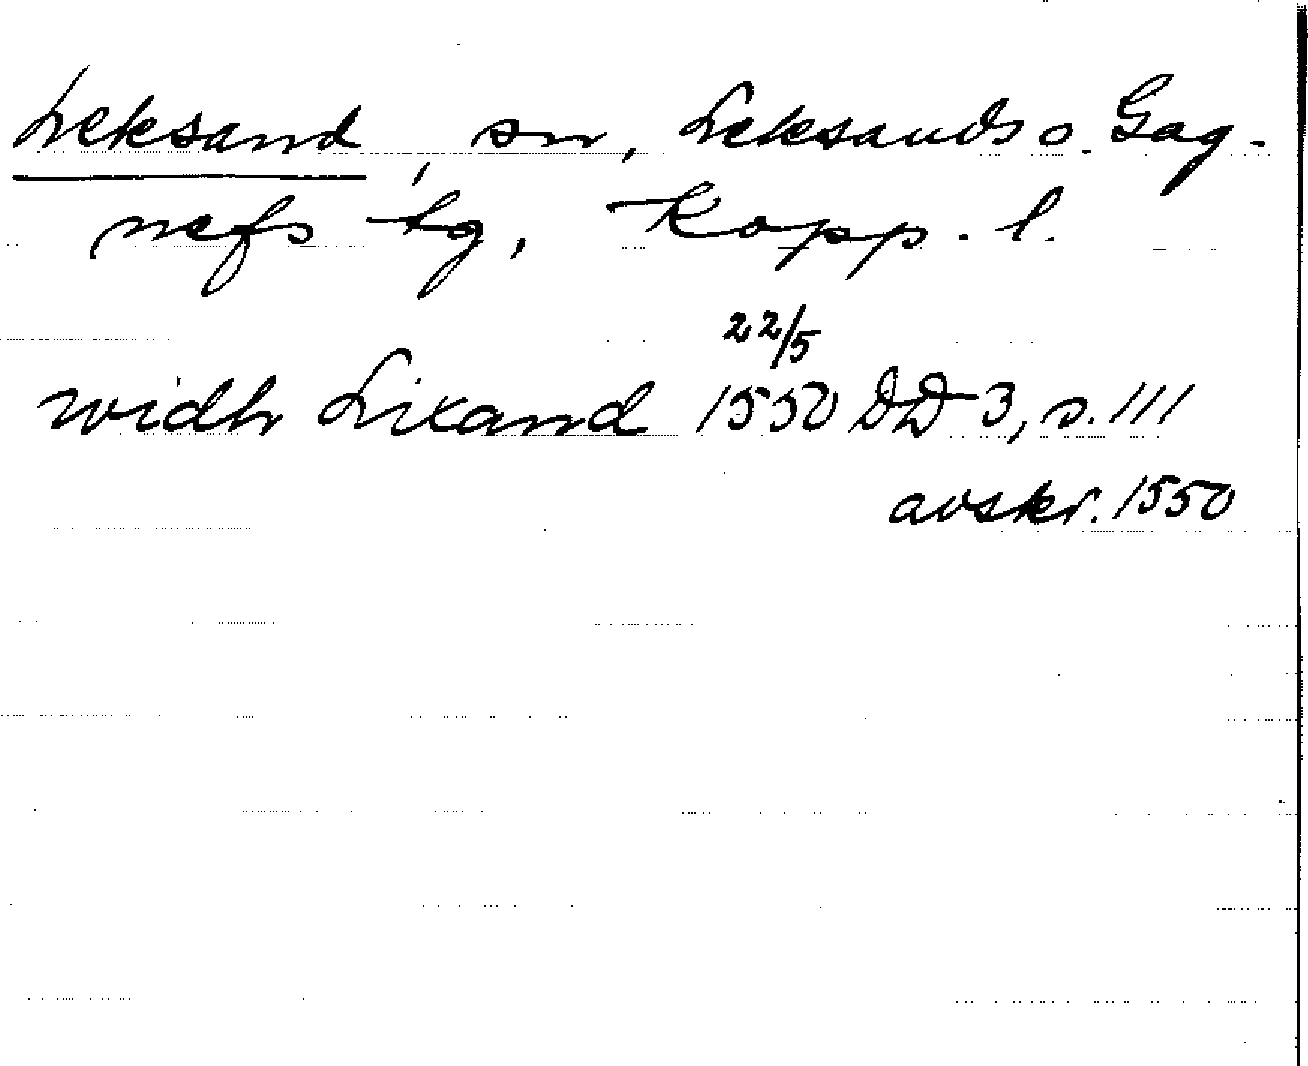 Leksand, sn, Leksands o. Gag-
nefs tg, Kopp. l.
22/5
widh Lixand 1550 DD 3, s. 111
avskr. 1550